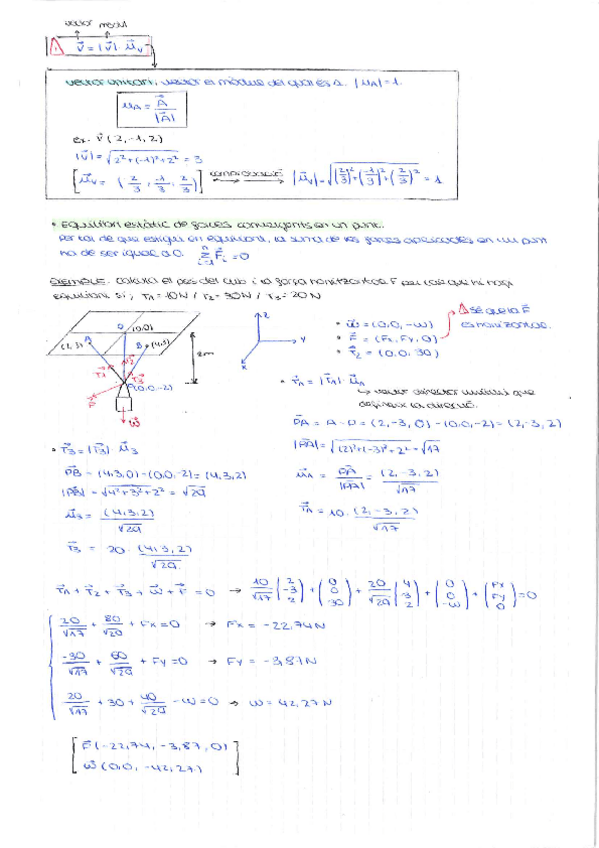 vector mòdul
⚠ v⃗ = |v⃗| · μ⃗v
vector unitari: vector el mòdule del qual és 1. |μA| = 1.
μA = A⃗ / |A⃗|
Ex. v⃗ (2, -1, 2)
|v⃗| = √(2² + (-1)² + 2²) = 3
[μ⃗v = (2/3, -1/3, 2/3)] comprovació |μ⃗v| = √((2/3)² + (-1/3)² + (2/3)²) = 1
• Equilibri estàtic de forces convergents en un punt.
Per tal de que estigui en equilibri, la suma de les forces aplicades en un punt
ha de ser igual a 0. Σ F⃗i = 0
i=1
EXEMPLE. Calcula el pes del cub i la força horitzontal F per tal que hi hagi
equilibri si; T1 = 10 N / T2 = 30 N / T3 = 20 N
O (0,0)
(2,3) A
B (4,3)
2m
T1
T2
T3
P(0,0,-2)
w⃗
z
y
x
• w⃗ = (0,0,-w)
• F⃗ = (Fx, Fy, 0)
• T⃗2 = (0,0,30)
⚠ sé que la F
és horitzontal.
• T⃗1 = |T⃗1| · μ⃗1
↳ vector director unitari que
defineix la direcció.
P⃗A = A - P = (2,-3,0) - (0,0,-2) = (2,-3,2)
|P⃗A| = √((2)² + (-3)² + 2²) = √17
μ⃗1 = P⃗A / |P⃗A| = (2,-3,2) / √17
T⃗1 = 10 · (2,-3,2) / √17
• T⃗3 = |T⃗3| · μ⃗3
P⃗B = (4,3,0) - (0,0,-2) = (4,3,2)
|P⃗B| = √(4² + 3² + 2²) = √29
μ⃗3 = (4,3,2) / √29
T⃗3 = 20 · (4,3,2) / √29
T⃗1 + T⃗2 + T⃗3 + w⃗ + F⃗ = 0 → 10/√17 (2 -3 2) + (0 0 30) + 20/√29 (4 3 2) + (0 0 -w) + (Fx Fy 0) = 0
20/√17 + 80/√29 + Fx = 0 → Fx = -22,74 N
-30/√17 + 60/√29 + Fy = 0 → Fy = -3,87 N
20/√17 + 30 + 40/√29 - w = 0 → w = 42,27 N
F⃗ (-22,74, -3,87, 0)
w⃗ (0,0, -42,27)